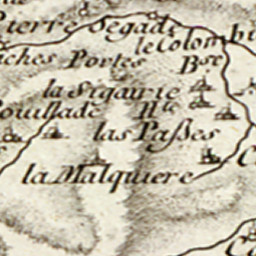 Pierre Segade
le Colombi
iches Portes Bse
la Sigairie
Bouillade Hte
las Passes
la Malquiere